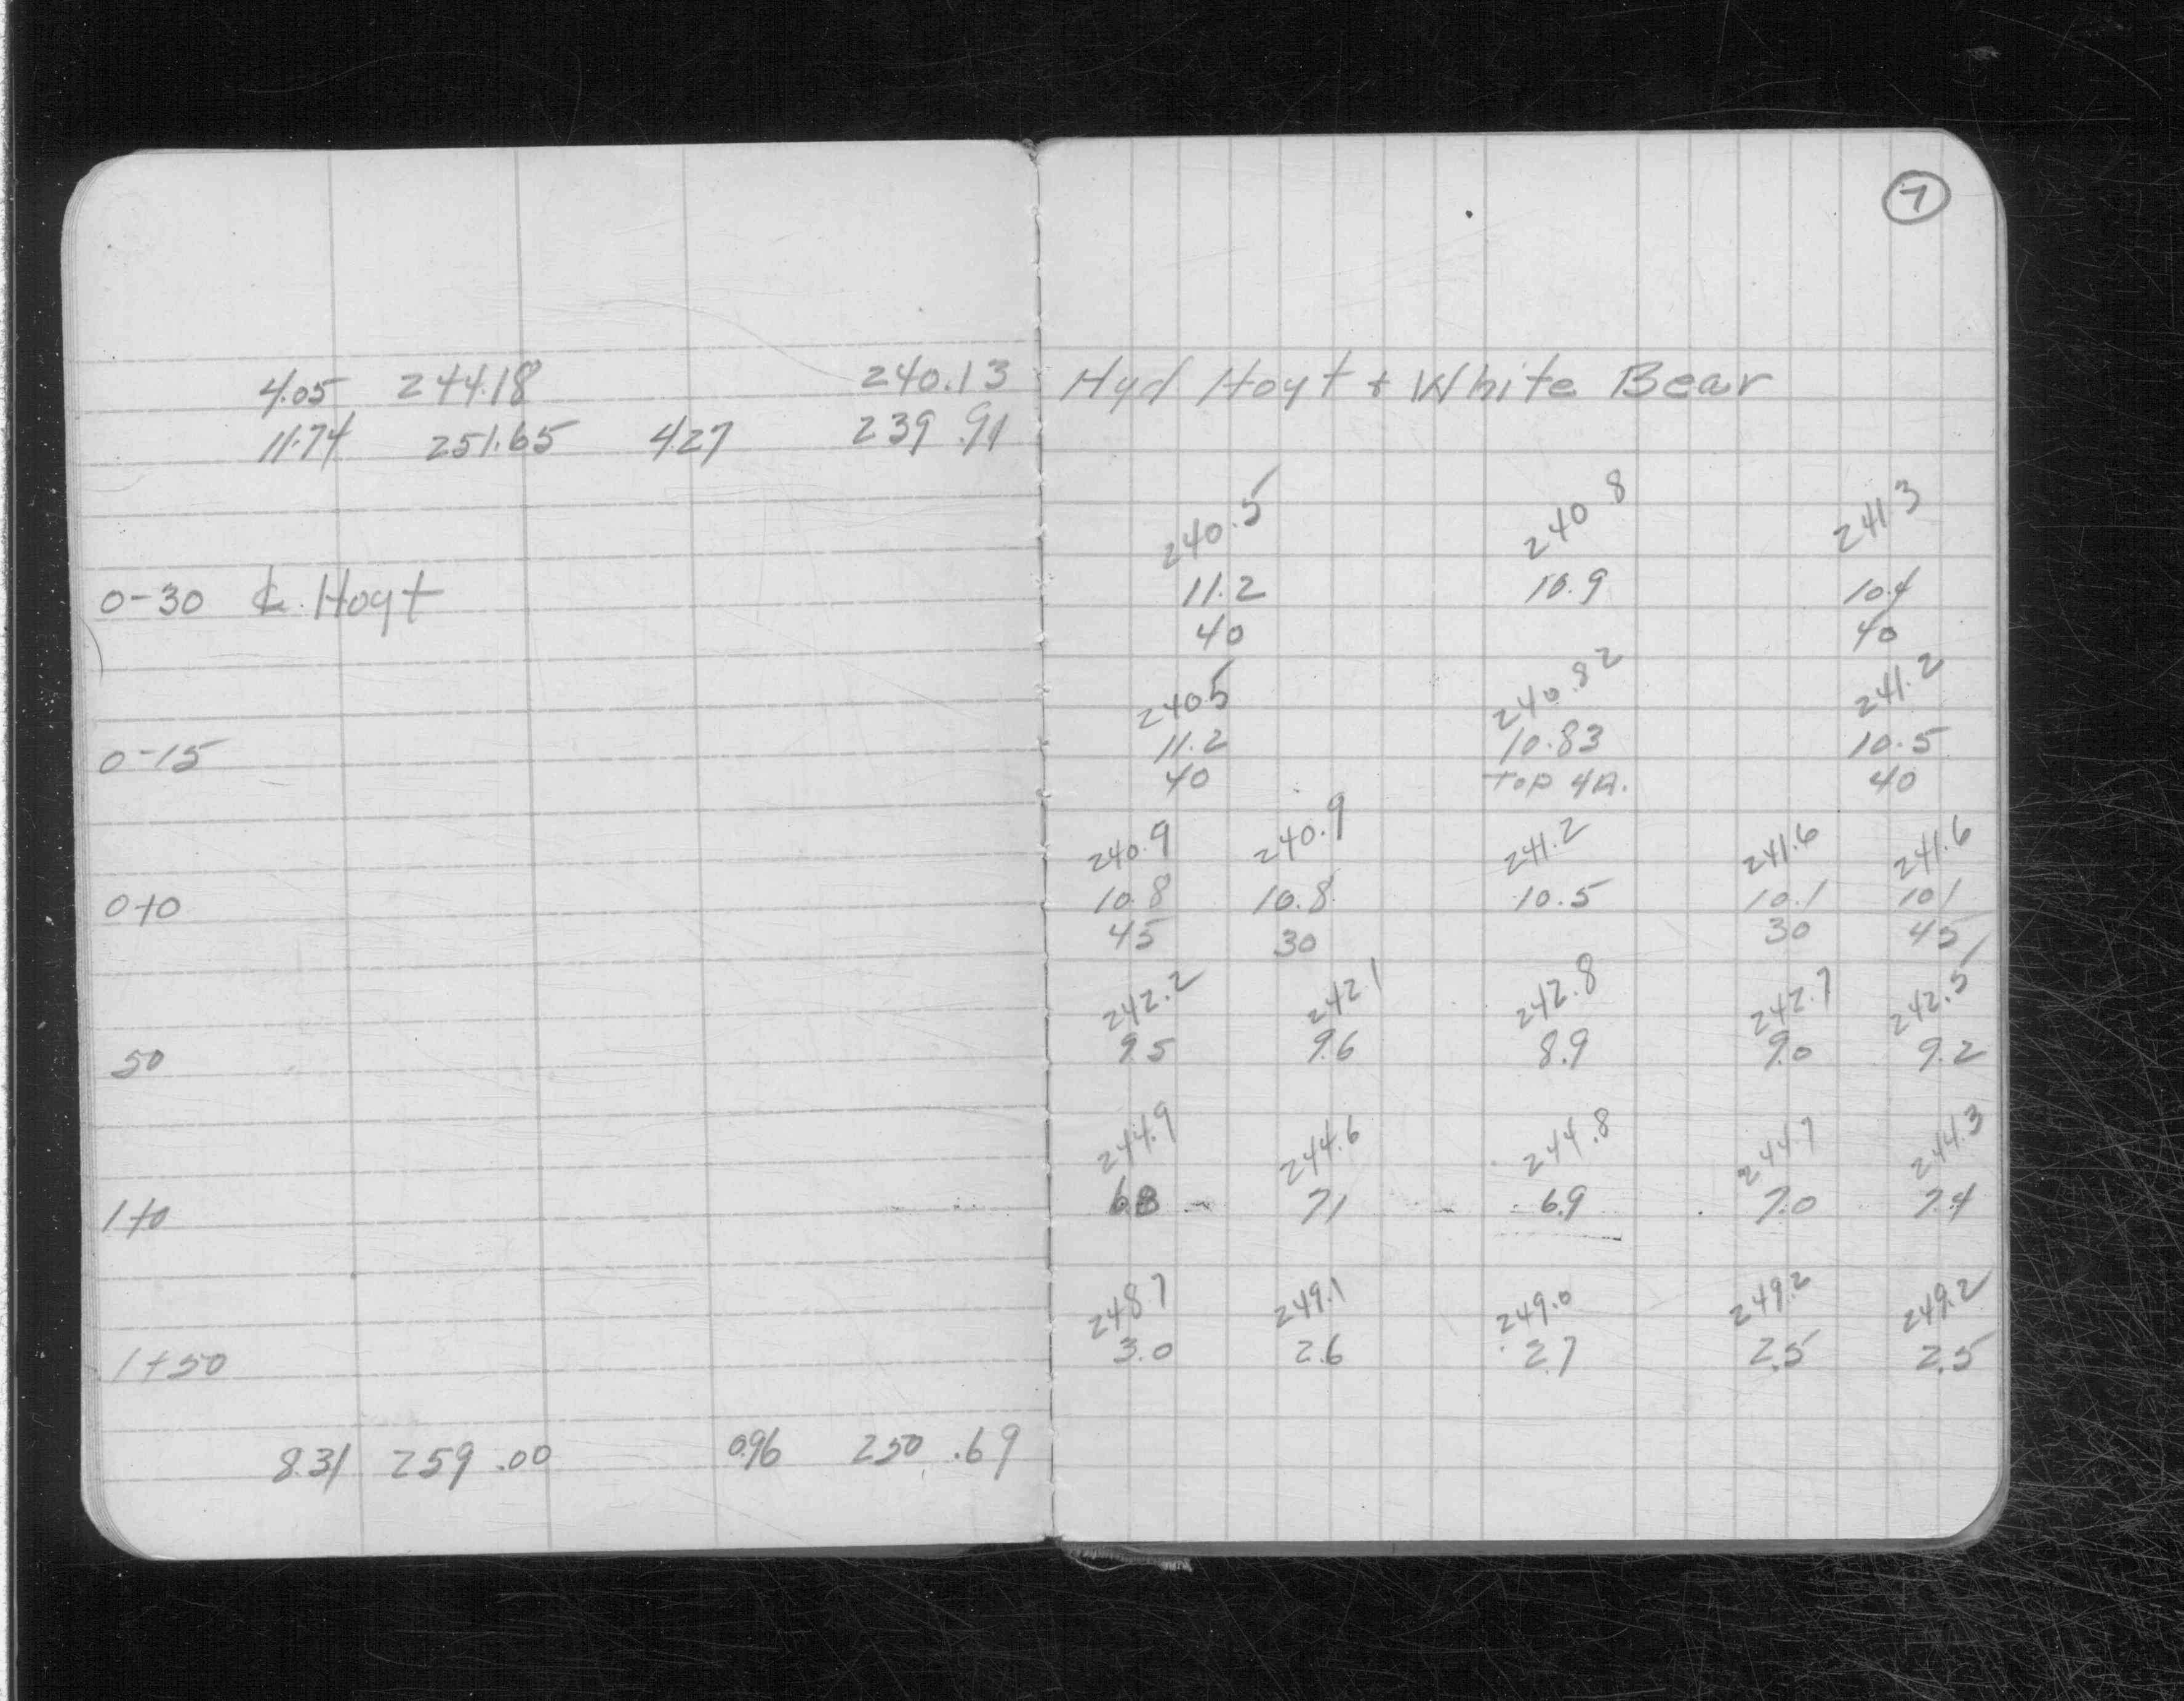 7
4.05 244.18 240.13 Hyd Hoyt + White Bear
11.74 251.65 4.27 239.91
240.5 240.8 241.3
0-30 ℄ Hoyt 11.2 10.9 10.4
40 40
240.5 240.82 241.2
0-15 11.2 10.83 10.5
40 Top 40
240.9 240.9 241.2 241.6 241.6
0+0 10.8 10.8 10.5 10.1 10.1
45 30 30 45
242.2 242.1 242.8 242.7 242.5
50 9.5 9.6 8.9 9.0 9.2
244.9 244.6 244.8 244.7 244.3
1+0 6.8 7.1 6.9 7.0 7.4
248.7 249.1 249.0 249.2 249.2
1+50 3.0 2.6 2.7 2.5 2.5
8.31 259.00 0.96 250.69